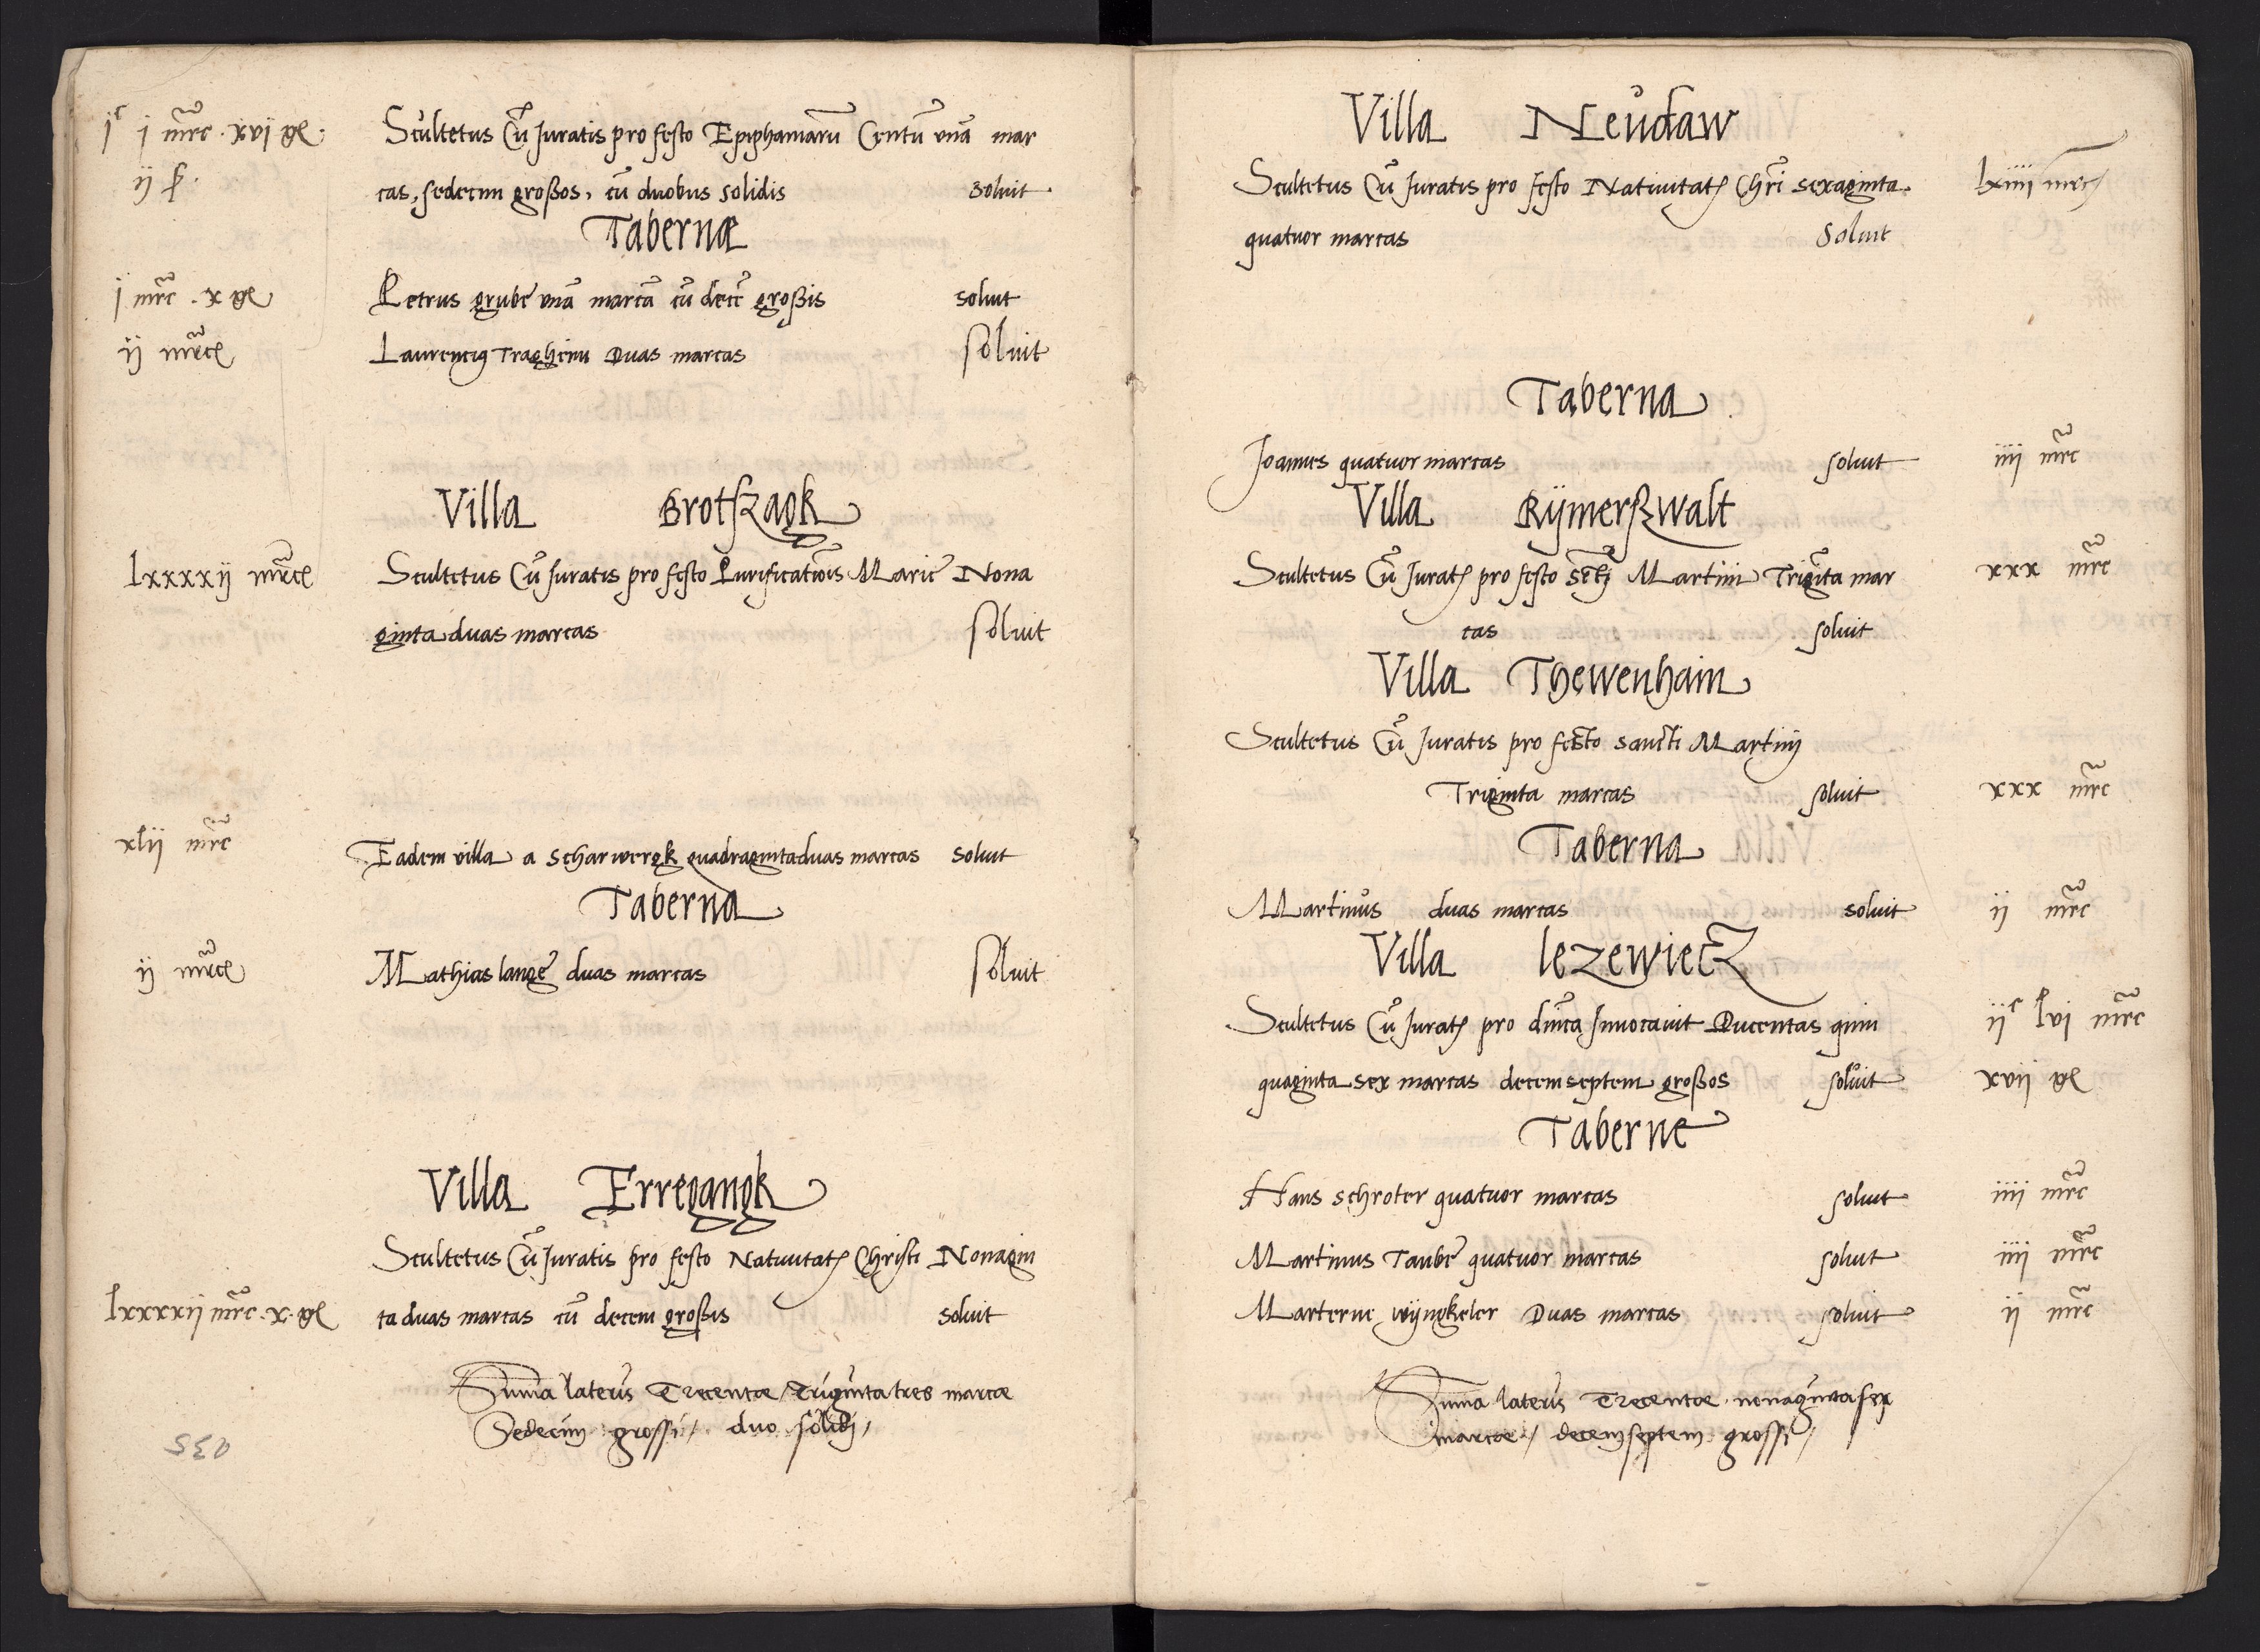 jᶜ j mrc . xvj gł . Scultetus Cū Juratis pro festo Epiphaniarū Centū vnā mar
ij ß . cas, sedecim großos, cū duobus solidis soluit
Tabernæ
j mrc . x gł Petrus grube vnā marcā cū decē großis soluit
ij mrcę Laurencius Traghenn Duas marcas soluit
Villa Brotszagk
lxxxxij mrcę Scultetus Cū Juratis pro festo Purificatiōis Marie Nona
ginta duas marcas soluit
xlij mrc Eadem villa a scharwergk quadragintaduas marcas soluit
Taberna
ij mrcę Mathias lange duas marcas soluit
Villa Erregangk
Scultetus Cū Juratis pro festo Natiuitatꝭ Christi Nonagin
lxxxxij mrc . x . gł ta duas marcas cū decem großis soluit
Sum̄a lateris Trecentae Triginta tres marcae
Sedecim grossi / duo solidi /
Villa Neudaw
Scultetus Cū Juratis pro festo Natiuitatꝭ Chri sexaginta lxiiii mrc
quatuor marcas Soluit
Taberna
Joannes quatuor marcas soluit iiij mrc
Villa Rÿmerßwalt
Scultetus Cū Juratꝭ pro festo sctj Martini Triginta mar xxx mrc
cas soluit
Villa Thewenhain
Scultetus Cū Juratis pro festo sancti Martinj
Triginta marcas soluit xxx mrc
Taberna
Martinus duas marcas soluit ij mrc
Villa lezewiecz
Scultetus Cū Juratꝭ pro dnica Inuocauit Ducentas quin ijᶜ lvj mrc
quaginta sex marcas decemseptem großos soluit xvij gł
Taberne
Hans schroter quatuor marcas soluit iiij mrc
Martinus Taube quatuor marcas soluit iiij mrc
Marterne wÿngkeler Duas marcas soluit ij mrc
Sum̄a lateris Trecentae nonaginta sex
marcae / decemseptem grossi /